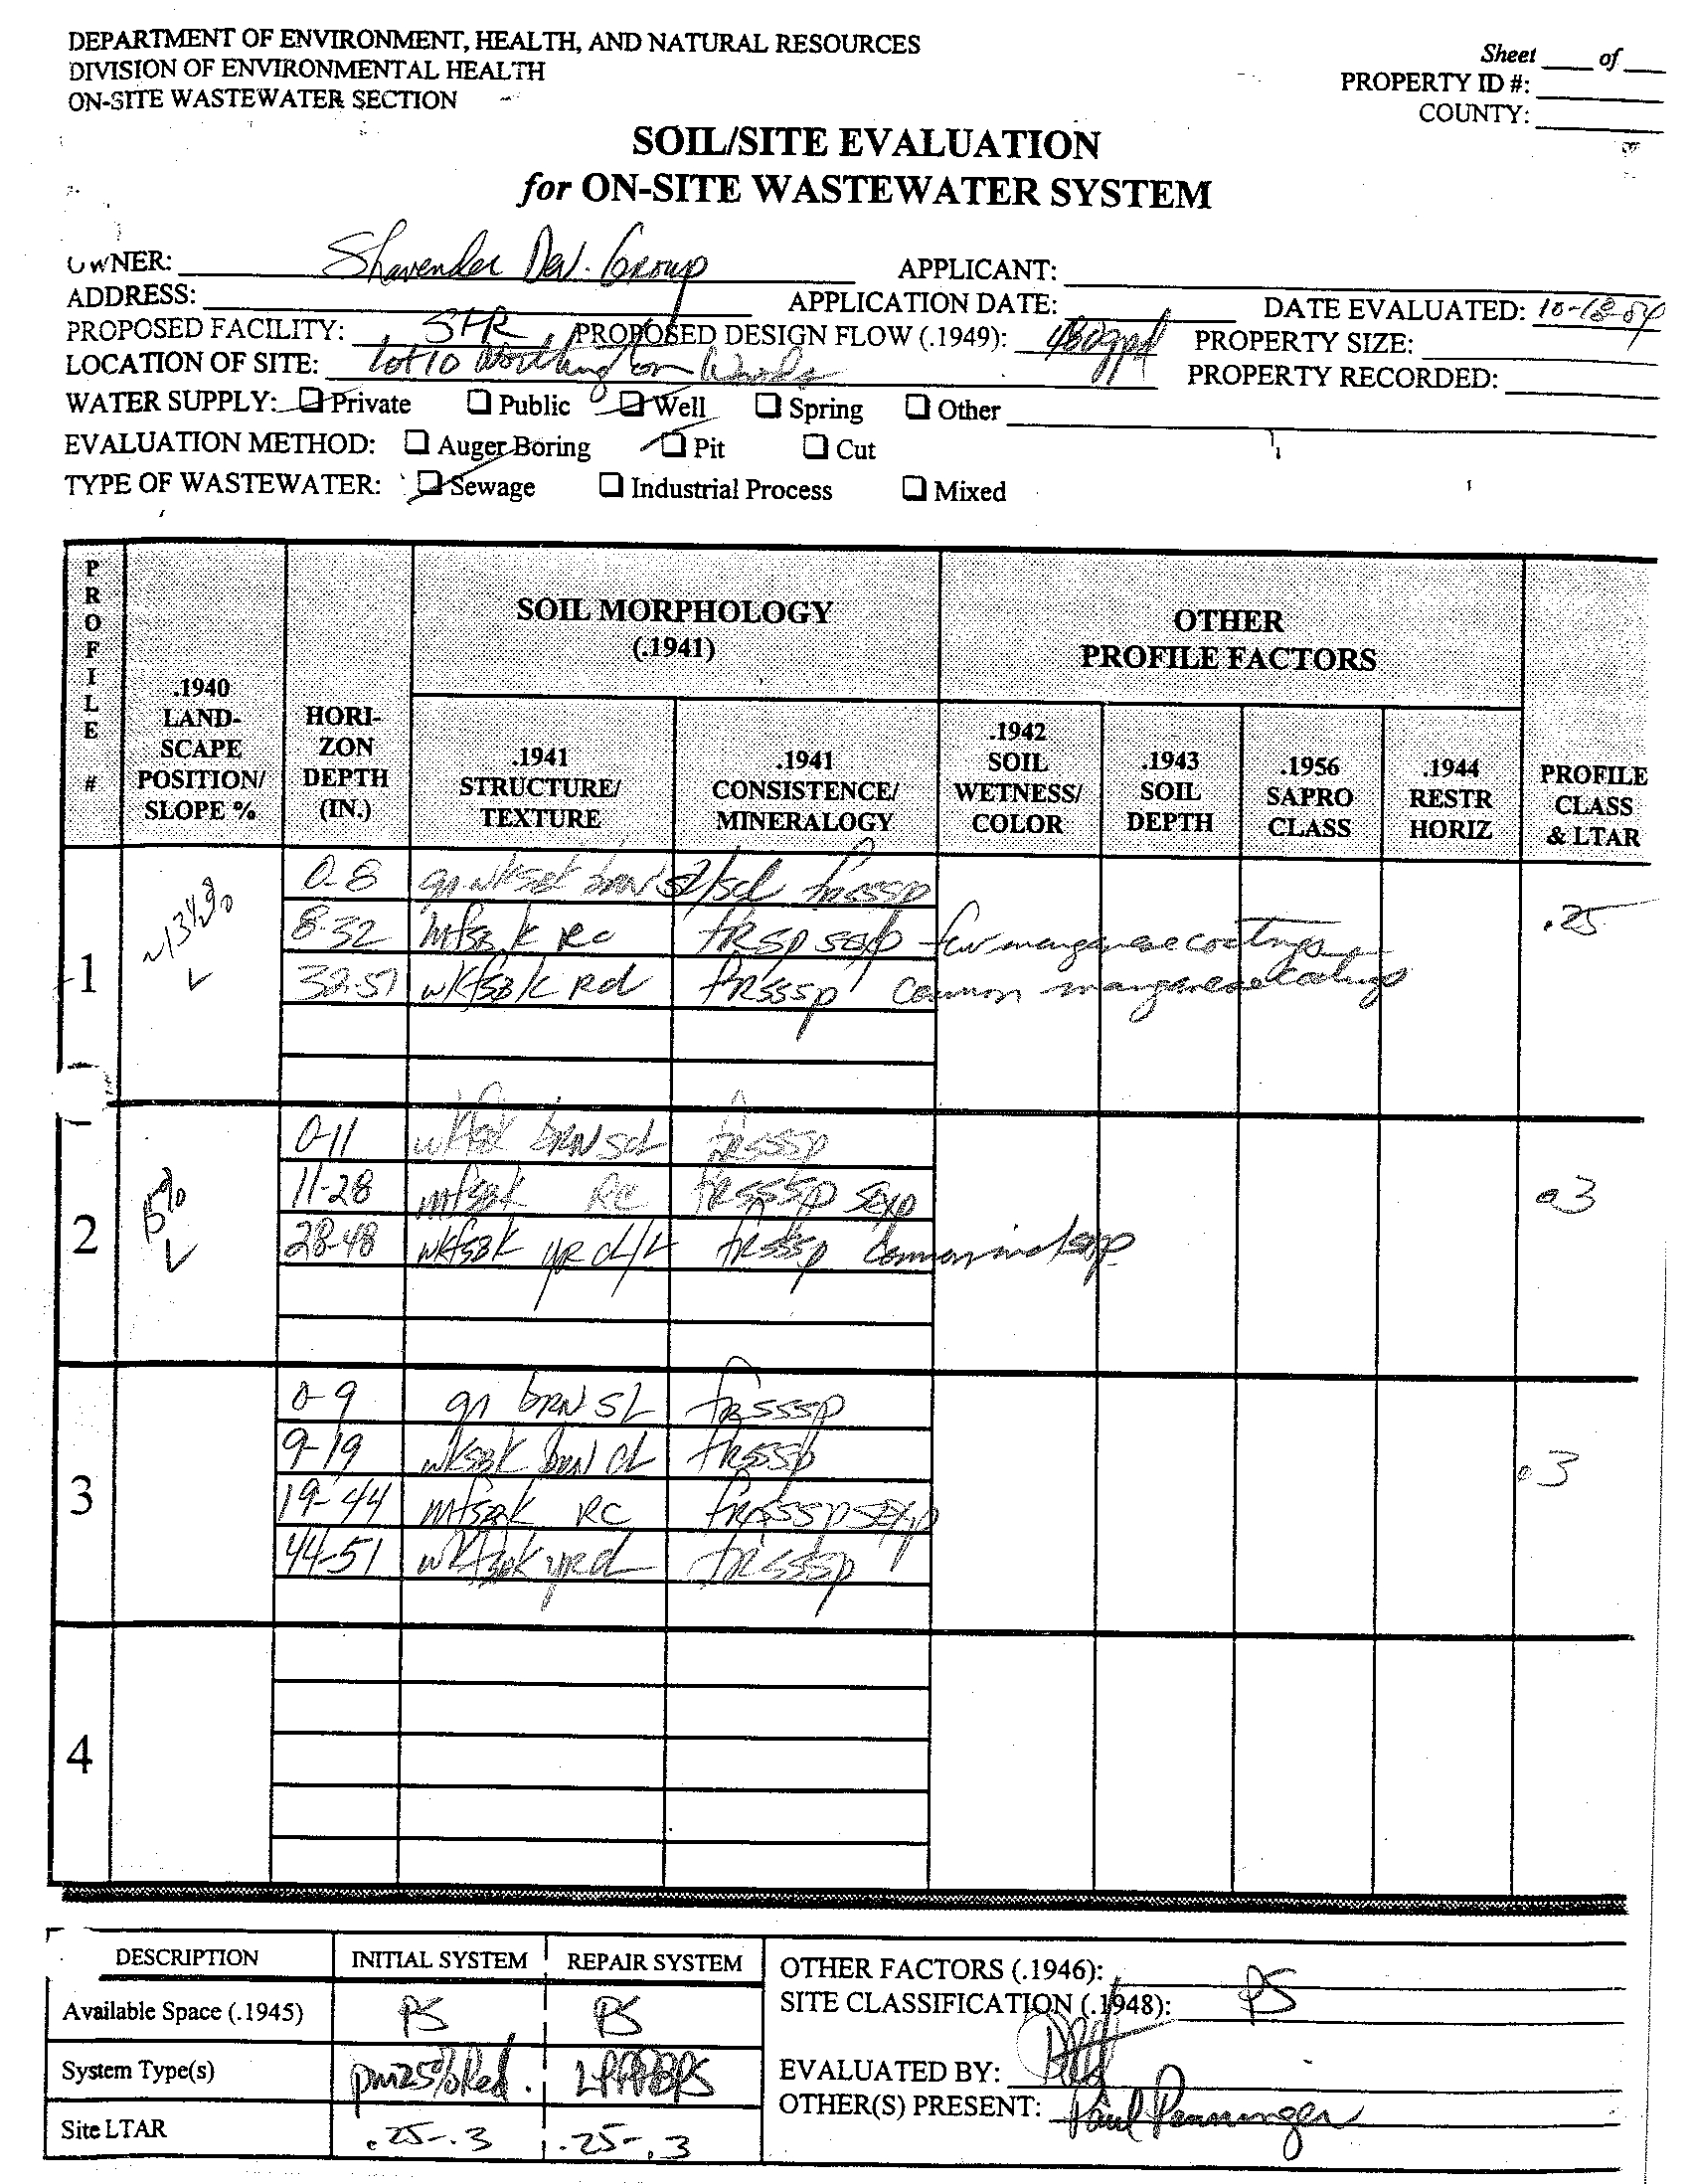 DEPARTMENT OF ENVIRONMENT, HEALTH, AND NATURAL RESOURCES
DIVISION OF ENVIRONMENTAL HEALTH
ON-SITE WASTEWATER SECTION
Sheet ____ of ____
PROPERTY ID #:
COUNTY:
SOIL/SITE EVALUATION
for ON-SITE WASTEWATER SYSTEM
OWNER: Shavender Dev. Group APPLICANT:
ADDRESS: APPLICATION DATE: DATE EVALUATED: 10-18-04
PROPOSED FACILITY: SFR PROPOSED DESIGN FLOW (.1949): 480gpd PROPERTY SIZE:
LOCATION OF SITE: Lot 10 Worthington Woods PROPERTY RECORDED:
WATER SUPPLY: Private Public Well Spring Other
EVALUATION METHOD: Auger Boring Pit Cut
TYPE OF WASTEWATER: Sewage Industrial Process Mixed
PROFILE #
.1940 LAND-SCAPE POSITION/ SLOPE %
HORI-ZON DEPTH (IN.)
SOIL MORPHOLOGY (.1941)
.1941 STRUCTURE/ TEXTURE
.1941 CONSISTENCE/ MINERALOGY
OTHER PROFILE FACTORS
.1942 SOIL WETNESS/ COLOR
.1943 SOIL DEPTH
.1956 SAPRO CLASS
.1944 RESTR HORIZ
PROFILE CLASS & LTAR
1 L .25
0-8 gr wksbk brn sl/scl frsssp
8-32 mfsbk RC frsp sexp few manganese coatings
32-51 wkfsbk Rcl frsssp common manganese coatings
2 5% L .3
0-11 wkfsbk brn scl frsssp
11-28 mfsbk RC frsssp sexp
28-48 wkfsbk yr cl/L frsssp common
3 .3
0-9 gr brn SL frsssp
9-19 wksbk brn cL frsssp
19-44 mfsbk RC frsssp sexp
44-51 wkfsbk yrcl frsssp
4
DESCRIPTION INITIAL SYSTEM REPAIR SYSTEM
Available Space (.1945) PS PS
System Type(s) pm25%Red.
Site LTAR .25-.3 .25-.3
OTHER FACTORS (.1946):
SITE CLASSIFICATION (.1948): PS
EVALUATED BY:
OTHER(S) PRESENT: Paul Penninger